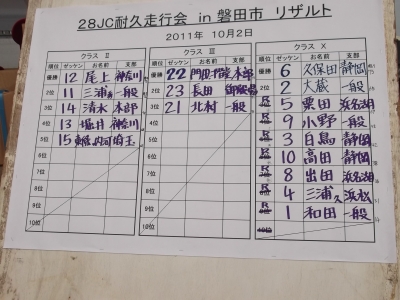 28JC耐久走行会 in 磐田市 リザルト
2011年 10月2日
クラス Ⅱ
順位 ゼッケン お名前 支部
優勝 12 尾上 神奈川
2位 11 三浦 一般
3位 14 清水 本部
4位 13 堀井 神奈川
5位 15 埼玉
6位
7位
8位
9位
10位
クラス Ⅲ
順位 ゼッケン お名前 支部
優勝 22 門田 本部
2位 23 長田 御殿場
3位 21 北村 一般
4位
5位
6位
7位
8位
9位
10位
クラス X
順位 ゼッケン お名前 支部
優勝 6 久保田 静岡
2位 2 大蔵 一般
R 5 栗田 浜名湖
R 9 小野 一般
R 3 白鳥 静岡
R 10 高田 静岡
R 8 出田 浜名湖
R 4 三浦久 浜松
R 1 和田 一般
10位